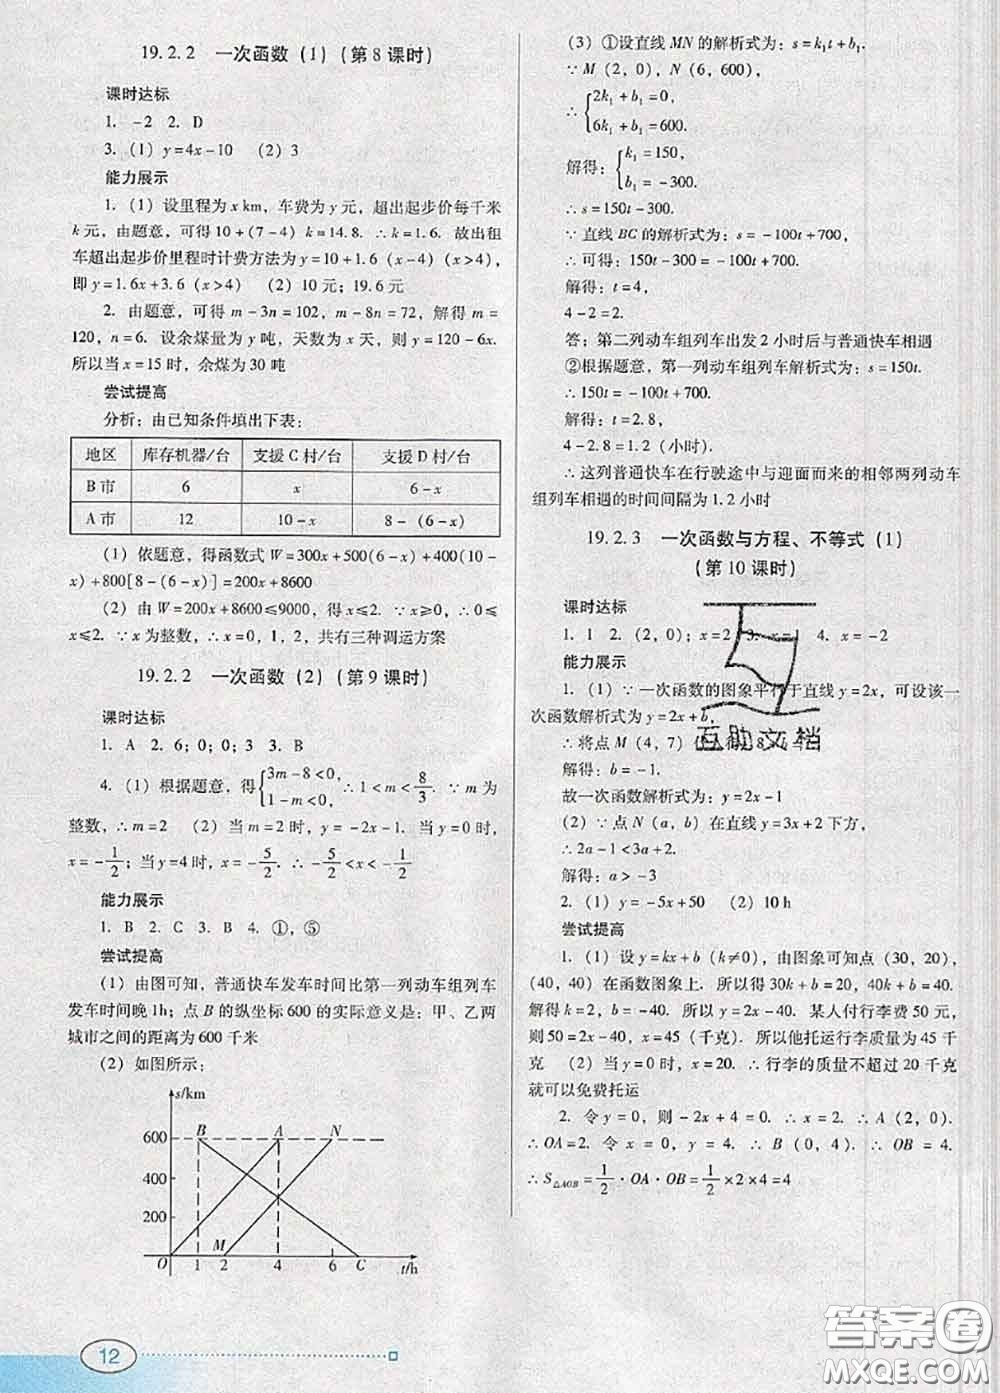 19.2.2 一次函数（1）（第8课时）
课时达标
1. -2 2. D
3.（1）y=4x-10 （2）3
能力展示
1.（1）设里程为x km，车费为y元，超出起步价每千米
k元，由题意，可得10+(7-4)k=14.8. ∴k=1.6. 故出租
车超出起步价里程时计费方法为y=10+1.6(x-4)(x>4)，
即y=1.6x+3.6(x>4) （2）10元；19.6元
2. 由题意，可得m-3n=102，m-8n=72，解得m=
120，n=6. 设余煤量为y吨，天数为x天，则y=120-6x.
所以当x=15时，余煤为30吨
尝试提高
分析：由已知条件填出下表：
地区 库存机器/台 支援C村/台 支援D村/台
B市 6 x 6-x
A市 12 10-x 8-(6-x)
（1）依题意，得函数式W=300x+500(6-x)+400(10-
x)+800[8-(6-x)]=200x+8600
（2）由W=200x+8600≤9000，得x≤2. ∵x≥0，∴0≤
x≤2. ∵x为整数，∴x=0，1，2，共有三种调运方案
19.2.2 一次函数（2）（第9课时）
课时达标
1. A 2. 6；0；0；3 3. B
4.（1）根据题意，得{3m-8<0, 1-m<0, ∴1<m<8/3. ∵m为
整数，∴m=2 （2）当m=2时，y=-2x-1. 当y=0时，
x=-1/2；当y=4时，x=-5/2. ∴-5/2<x<-1/2
能力展示
1. B 2. C 3. B 4. ①，⑤
尝试提高
（1）由图可知，普通快车发车时间比第一列动车组列车
发车时间晚1h；点B的纵坐标600的实际意义是：甲、乙两
城市之间的距离为600千米
（2）如图所示；
s/km
B A N
600
400
200
O 1 M 2 4 6 C t/h
12
（3）①设直线MN的解析式为：s=k₁t+b₁.
∵M（2，0），N（6，600），
∴{2k₁+b₁=0, 6k₁+b₁=600.
解得：{k₁=150, b₁=-300.
∴s=150t-300.
∵直线BC的解析式为：s=-100t+700，
∴可得：150t-300=-100t+700，
解得：t=4，
4-2=2.
答；第二列动车组列车出发2小时后与普通快车相遇
②根据题意，第一列动车组列车解析式为：s=150t.
∴150t=-100t+700.
解得：t=2.8，
4-2.8=1.2（小时）.
∴这列普通快车在行驶途中与迎面而来的相邻两列动车
组列车相遇的时间间隔为1.2小时
19.2.3 一次函数与方程、不等式（1）
（第10课时）
课时达标
1. 1 2.（2，0）；x=2 3. x= 4. x=-2
能力展示
1.（1）∵一次函数的图象平行于直线y=2x，可设该一
次函数解析式为y=2x+b，
∴将点M（4，7）
互助文档
解得：b=-1.
故一次函数解析式为：y=2x-1
（2）∵点N（a，b）在直线y=3x+2下方，
∴2a-1<3a+2.
解得：a>-3
2.（1）y=-5x+50 （2）10 h
尝试提高
1.（1）设y=kx+b（k≠0），由图象可知点（30，20），
（40，40）在函数图象上. 所以得30k+b=20，40k+b=40.
解得k=2，b=-40. 所以y=2x-40. 某人付行李费50元，
则50=2x-40，x=45（千克）. 所以他托运行李质量为45千
克 （2）当y=0时，x=20. ∴行李的质量不超过20千克
就可以免费托运
2. 令y=0，则-2x+4=0. ∴x=2. ∴A（2，0）.
∴OA=2. 令x=0，y=4. ∴B（0，4）. ∴OB=4.
∴S△AOB=1/2·OA·OB=1/2×2×4=4
答案圈
MXQE.COM